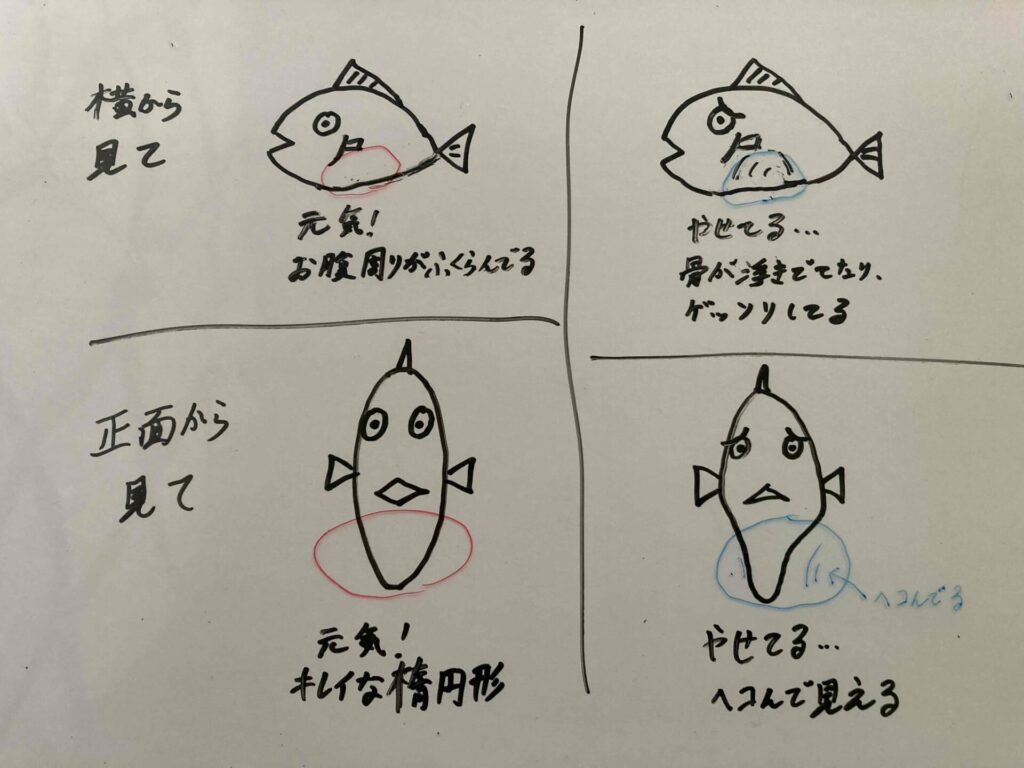 横から
見て
元気!
お腹周りがふくらんでる
やせてる…
骨が浮きでてたり、
ゲッソリしてる
正面から
見て
元気!
キレイな楕円形
ヘコんでる
やせてる…
ヘコんで見える